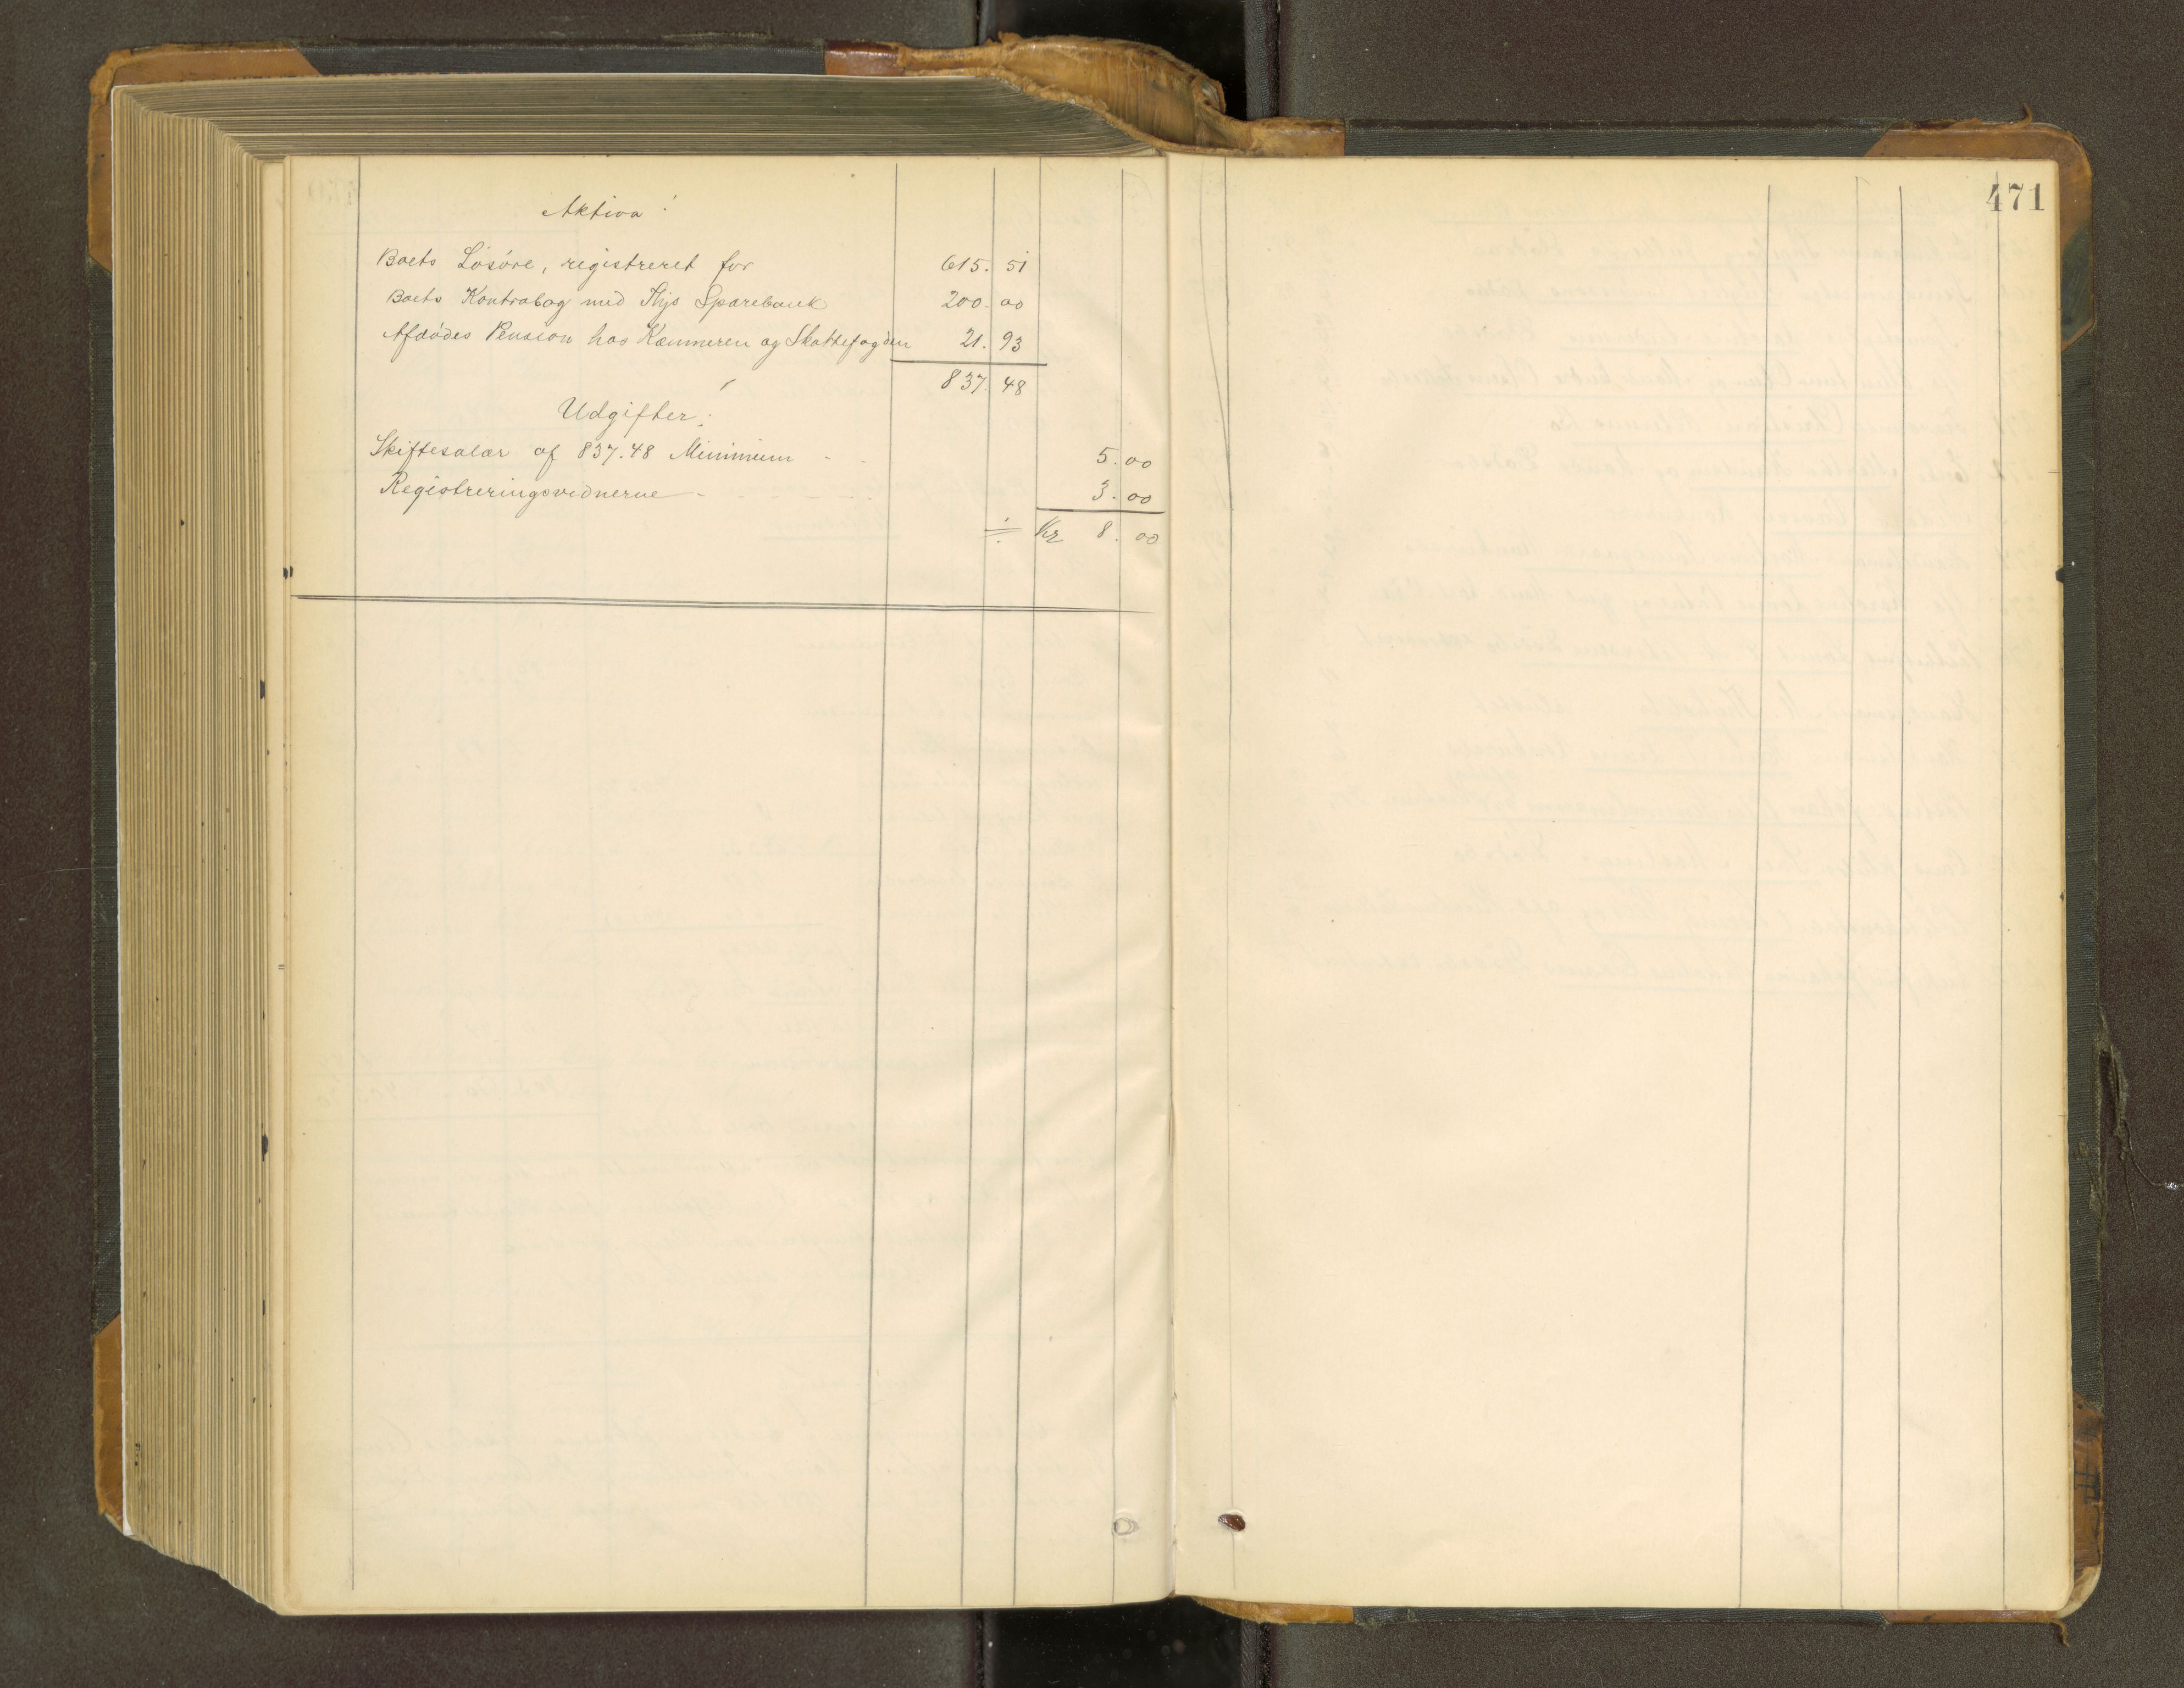 Aktiva:
Boets Løsøre, registreret for 615. 51
Boets Kontrabog med Sparebank 200. 00
Afdødes Pension hos Kæmneren og Skattefogden 21. 93
837. 48
Udgifter:
Skiftesalær af 837.48 Minimum - - 5. 00
Registreringsvidnerne - 3. 00
÷ Kr 8. 00
471